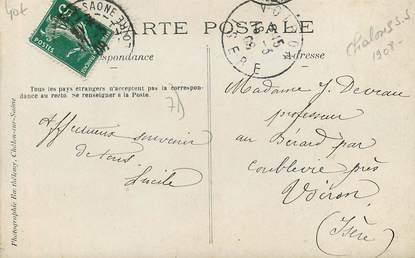 40t
CARTE POSTALE
Correspondance
Adresse
Tous les pays étrangers n'acceptent pas la correspon-
dance au recto. Se renseigner à la Poste.
Chalon s.S
1908
71
Affectueux souvenir
de tous.
Lucile
Madame J. Deveau
professeur
au Bérard par
coublevie près
Voiron
(Isère)
Photographie Barthélemy, Châlon-sur-Saône
SAONE
LOIRE
ISERE
5